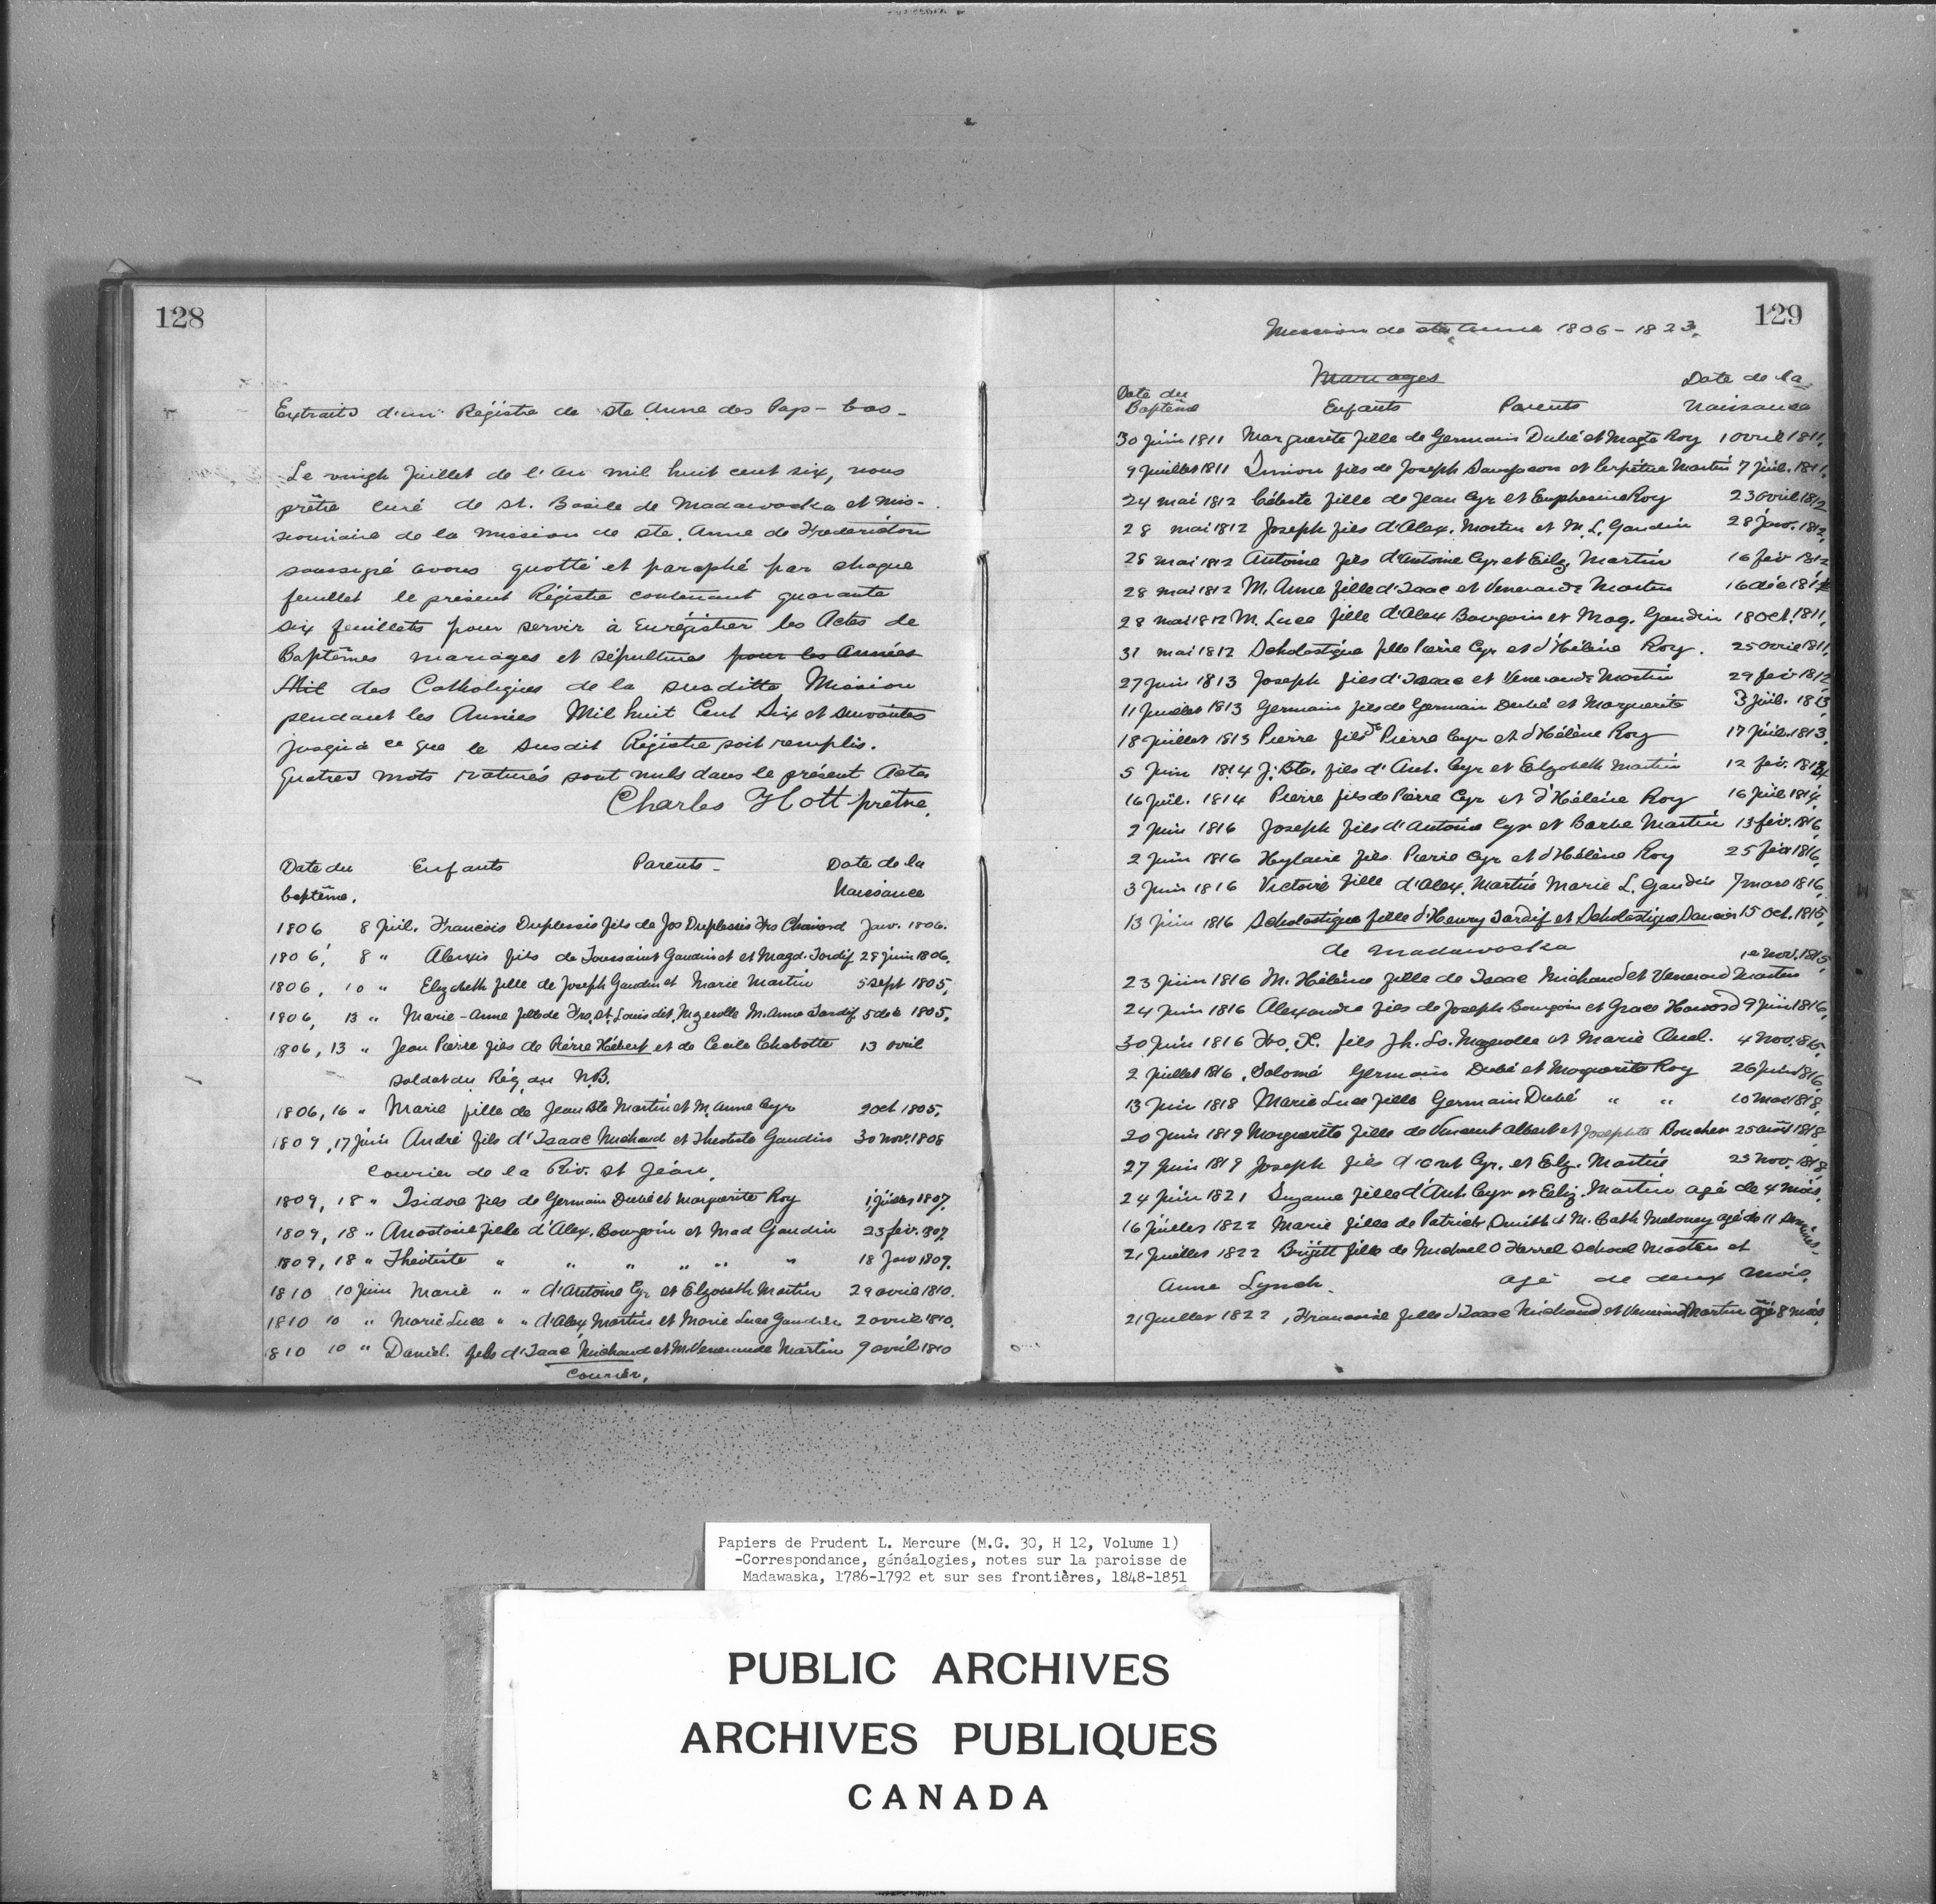 128
Extraits d'un Régistre de Ste Anne des Pays-bas-
Le vingh Juillet de l'an mil huit cent six, nous
prêtre curé de St. Basile de Madawaska et Mis-
sionnaire de la Mission de Ste. Anne de Frederickton
soussigné avons quotté et paraphé par chaque
feuillet le présent Régistre contenant quarante
six feuillets pour servir à Enrégistrer les Actes de
Baptêmes mariages et sépultures pour les Années
Mil des Catholiques de la susditte Mission
pendant les Années Mil huit Cent Six et suivantes
jusqu'à ce que le susdit Régistre soit remplis.
Quatres mots raturés sont nuls dans le présent Acte
Charles Hott prêtre.
Date du Enfants Parents- Date de la
baptême. Naissance
1806 8 Juil. Francois Duplessis fils de Jos Duplessis Frs Janv. 1806.
1806, 8 " Alexis fils de Toussaint Gaudin et et Magd. Tardif 28 juin 1806.
1806, 10 " Elizabeth fille de Joseph Gaudin et Marie Martin 5 sept 1805,
1806, 13 " Marie-Anne fille de Frs. St. Louis dit Mazerolle M. Anne Tardif 5 dec 1805,
1806, 13 " Jean Pierre fils de Pierre Hébert et de Cecile Chabotte 13 avril
Soldat du Rég. du N.B.
1806, 16 " Marie fille de Jean Bte Martin et M. Anne Cyr 2 oct 1805,
1809, 17 juin André fils d'Isaac Michaud et Theotiste Gaudin 30 nov. 1808
Courier de la Riv. St Jean.
1809, 18 " Isidore fils de Germain Dubé et Marguerite Roy 1 juillet 1807,
1809, 18 " Anastasie fille d'Alex. Bourgoin et Mad Gaudin 23 fév. 1807
1809, 18 " Théotiste " " " " " " 18 Janv 1809.
1810 10 juin Marie " " d'Antoine Cyr et Elzabeth Martin 29 avril 1810.
1810 10 " Marie Luce " " d'Alex Martin et Marie Luce Gaudin 2 avril 1810.
1810 10 " Daniel fils d'Isaac Michaud et M. Venerande Martin 9 avril 1810
Courier.
129
Mission de Ste. Anne 1806-1823.
Mariages
Date du Date de la
Baptême Enfants Parents Naissance
30 juin 1811 Marguerite fille de Germain Dubé et Magte Roy 1 avril 1811,
9 Juillet 1811 Simion fils de Joseph Sampson et Perpétue Martin 7 juil. 1811,
24 mai 1812 Céleste fille de Jean Cyr et Euphesine Roy 23 avril 1812
28 mai 1812 Joseph fils d'Alex. Martin et M. L. Gaudin 28 janv. 1812,
28 mai 1812 Antoine fils d'Antoine Cyr et Eliz. Martin 16 fév 1812
28 mai 1812 M. Anne fille d'Isaac et Venerande Martin 16 déc 1811
28 mai 1812 M. Luce fille d'Alex Bourgoin et Mag. Gaudin 18 Oct. 1811,
31 mai 1812 Scholastique fille Pierre Cyr et d'Hélène Roy. 25 avril 1811,
27 juin 1813 Joseph fils d'Isaac et Venerande Martin 29 fév 1812
11 Juillet 1813 Germain fils de Germain Dubé et Marguerite 3 juil. 1813,
18 Juillet 1813 Pierre fils de Pierre Cyr et d'Hélène Roy 17 juil. 1813,
5 Juin 1814 J. Bte. fils d'Ant. Cyr et Elzabeth Martin 12 fév. 1814
16 Juil. 1814 Pierre fils de Pierre Cyr et d'Hélène Roy 16 Juil 1814,
2 Juin 1816 Joseph fils d'Antoine Cyr et Barbe Martin 13 fév. 1816,
2 Juin 1816 Hylaire fils Pierre Cyr et d'Hélène Roy 25 fév 1816,
3 Juin 1816 Victoire fille d'Alex. Martin Marie L. Gaudin 7 mars 1816,
13 Juin 1816 Scholastique fille d'Henry Tardif et Scholastique 15 Oct. 1815,
de Madawaska
23 Juin 1816 M. Hélène fille de Isaac Michaud et Venerand Martin 1e nov. 1815,
24 Juin 1816 Alexandre fils de Joseph Bourgoin et Grace Howard 9 juin 1816,
30 Juin 1816 Frs. X. fils Jh. Ls. Mazerolle et Marie 4 Nov. 1815,
2 Juillet 1816, Salomé Germain Dubé et Marguerite Roy 26 Juin 1816,
13 Juin 1818 Marie Luce fille Germain Dubé " " 10 mars 1818,
20 Juin 1819 Marguerite fille de Vincent Albert et Josephte Boucher 25 août 1818
27 Juin 1819 Joseph fils d'ant Cyr. et Elz. Martin 23 nov. 1818
24 Juin 1821 Suzanne fille d'Ant. Cyr et Eliz. Martin agé de 4 mois.
16 juillet 1822 Marie fille de Patrick Smith & M. Cath Meloney agé de 11 semaines.
21 juillet 1822 Brijitt fille de Michael O Farrel School Master et
Anne Lynch. agé de deux mois.
21 juillet 1822, Francoise fille d'Isaac Michaud et Venerand Martin agé 8 mois
Papiers de Prudent L. Mercure (M.G. 30, H 12, Volume 1)
-Correspondance, généalogies, notes sur la paroisse de
Madawaska, 1786-1792 et sur ses frontières, 1848-1851
PUBLIC ARCHIVES
ARCHIVES PUBLIQUES
CANADA